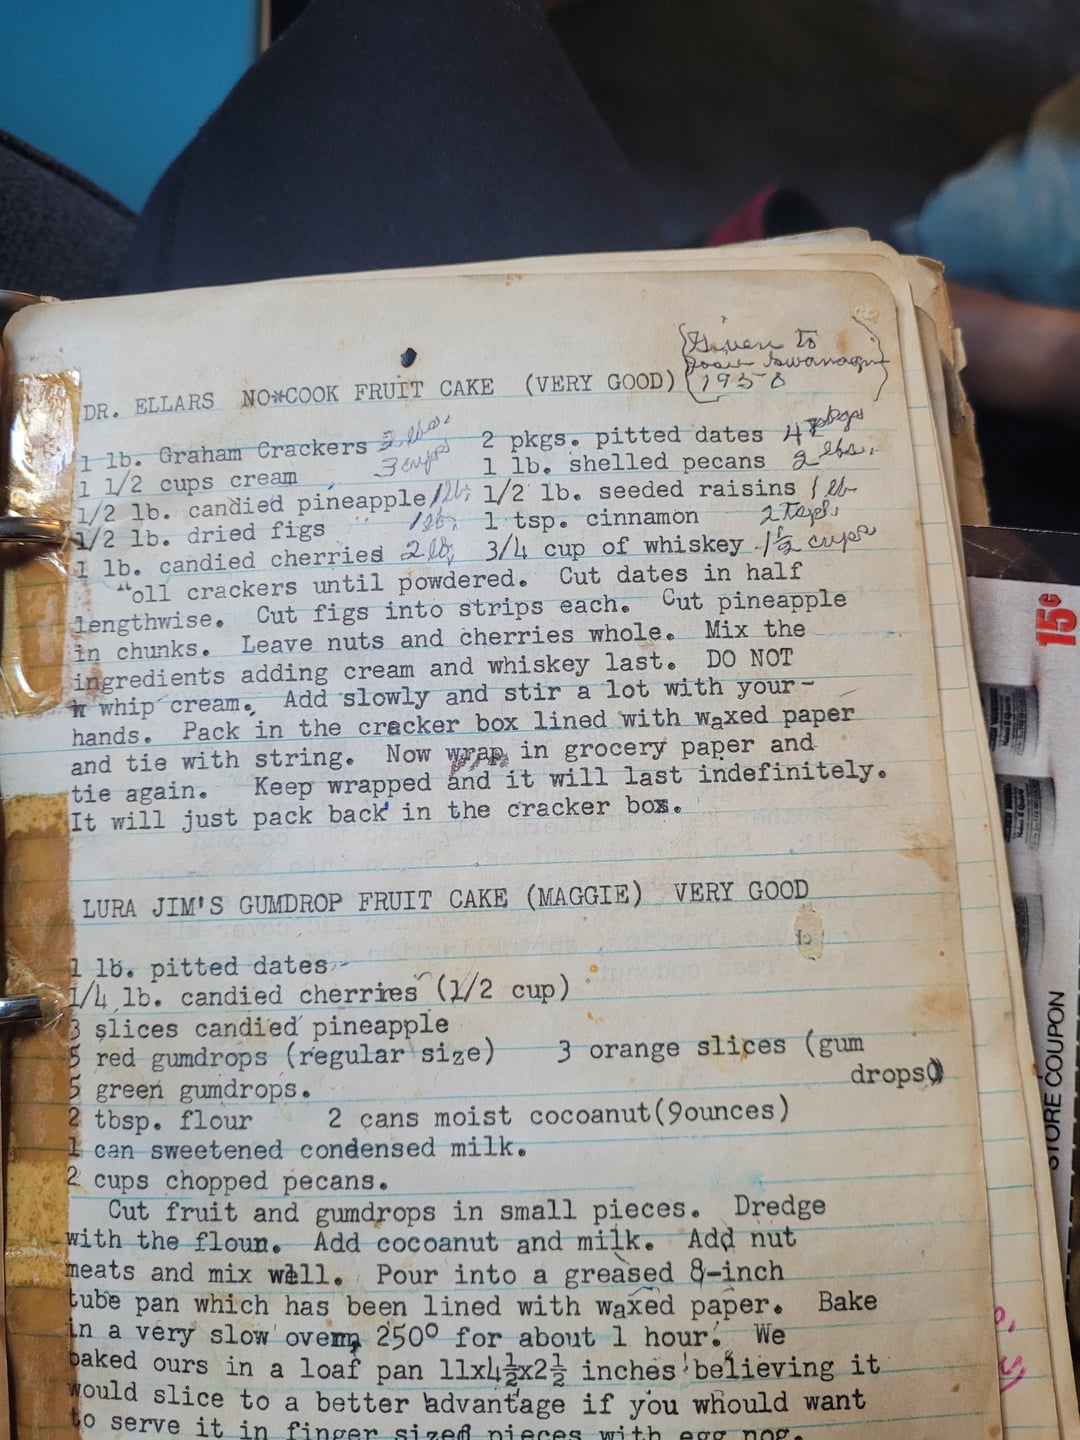 {Given to
Josie Swanagn
1958}
DR. ELLARS NO*COOK FRUIT CAKE (VERY GOOD)
1 lb. Graham Crackers 2 lbs. 2 pkgs. pitted dates 4 pkgs
1 1/2 cups cream 3 cups 1 lb. shelled pecans 2 lbs.
1/2 lb. candied pineapple 1 lb. 1/2 lb. seeded raisins 1 lb
1/2 lb. dried figs " 1 lb. 1 tsp. cinnamon 2 tsps.
1 lb. candied cherries 2 lb. 3/4 cup of whiskey 1 1/2 cups
"oll crackers until powdered. Cut dates in half
lengthwise. Cut figs into strips each. Cut pineapple
in chunks. Leave nuts and cherries whole. Mix the
ingredients adding cream and whiskey last. DO NOT
whip cream. Add slowly and stir a lot with your-
hands. Pack in the cracker box lined with waxed paper
and tie with string. Now wrap in grocery paper and
tie again. Keep wrapped and it will last indefinitely.
It will just pack back in the cracker box.
LURA JIM'S GUMDROP FRUIT CAKE (MAGGIE) VERY GOOD
1 lb. pitted dates
1/4 lb. candied cherries (1/2 cup)
3 slices candied pineapple
5 red gumdrops (regular size) 3 orange slices (gum
drops)
5 green gumdrops.
2 tbsp. flour 2 cans moist cocoanut(9ounces)
1 can sweetened condensed milk.
2 cups chopped pecans.
Cut fruit and gumdrops in small pieces. Dredge
with the flour. Add cocoanut and milk. Add nut
meats and mix well. Pour into a greased 8-inch
tube pan which has been lined with waxed paper. Bake
in a very slow oven, 250° for about 1 hour. We
baked ours in a loaf pan 11x4½x2½ inches believing it
would slice to a better advantage if you whould want
to serve it in finger sized pieces with egg nog.
15¢
STORE COUPON